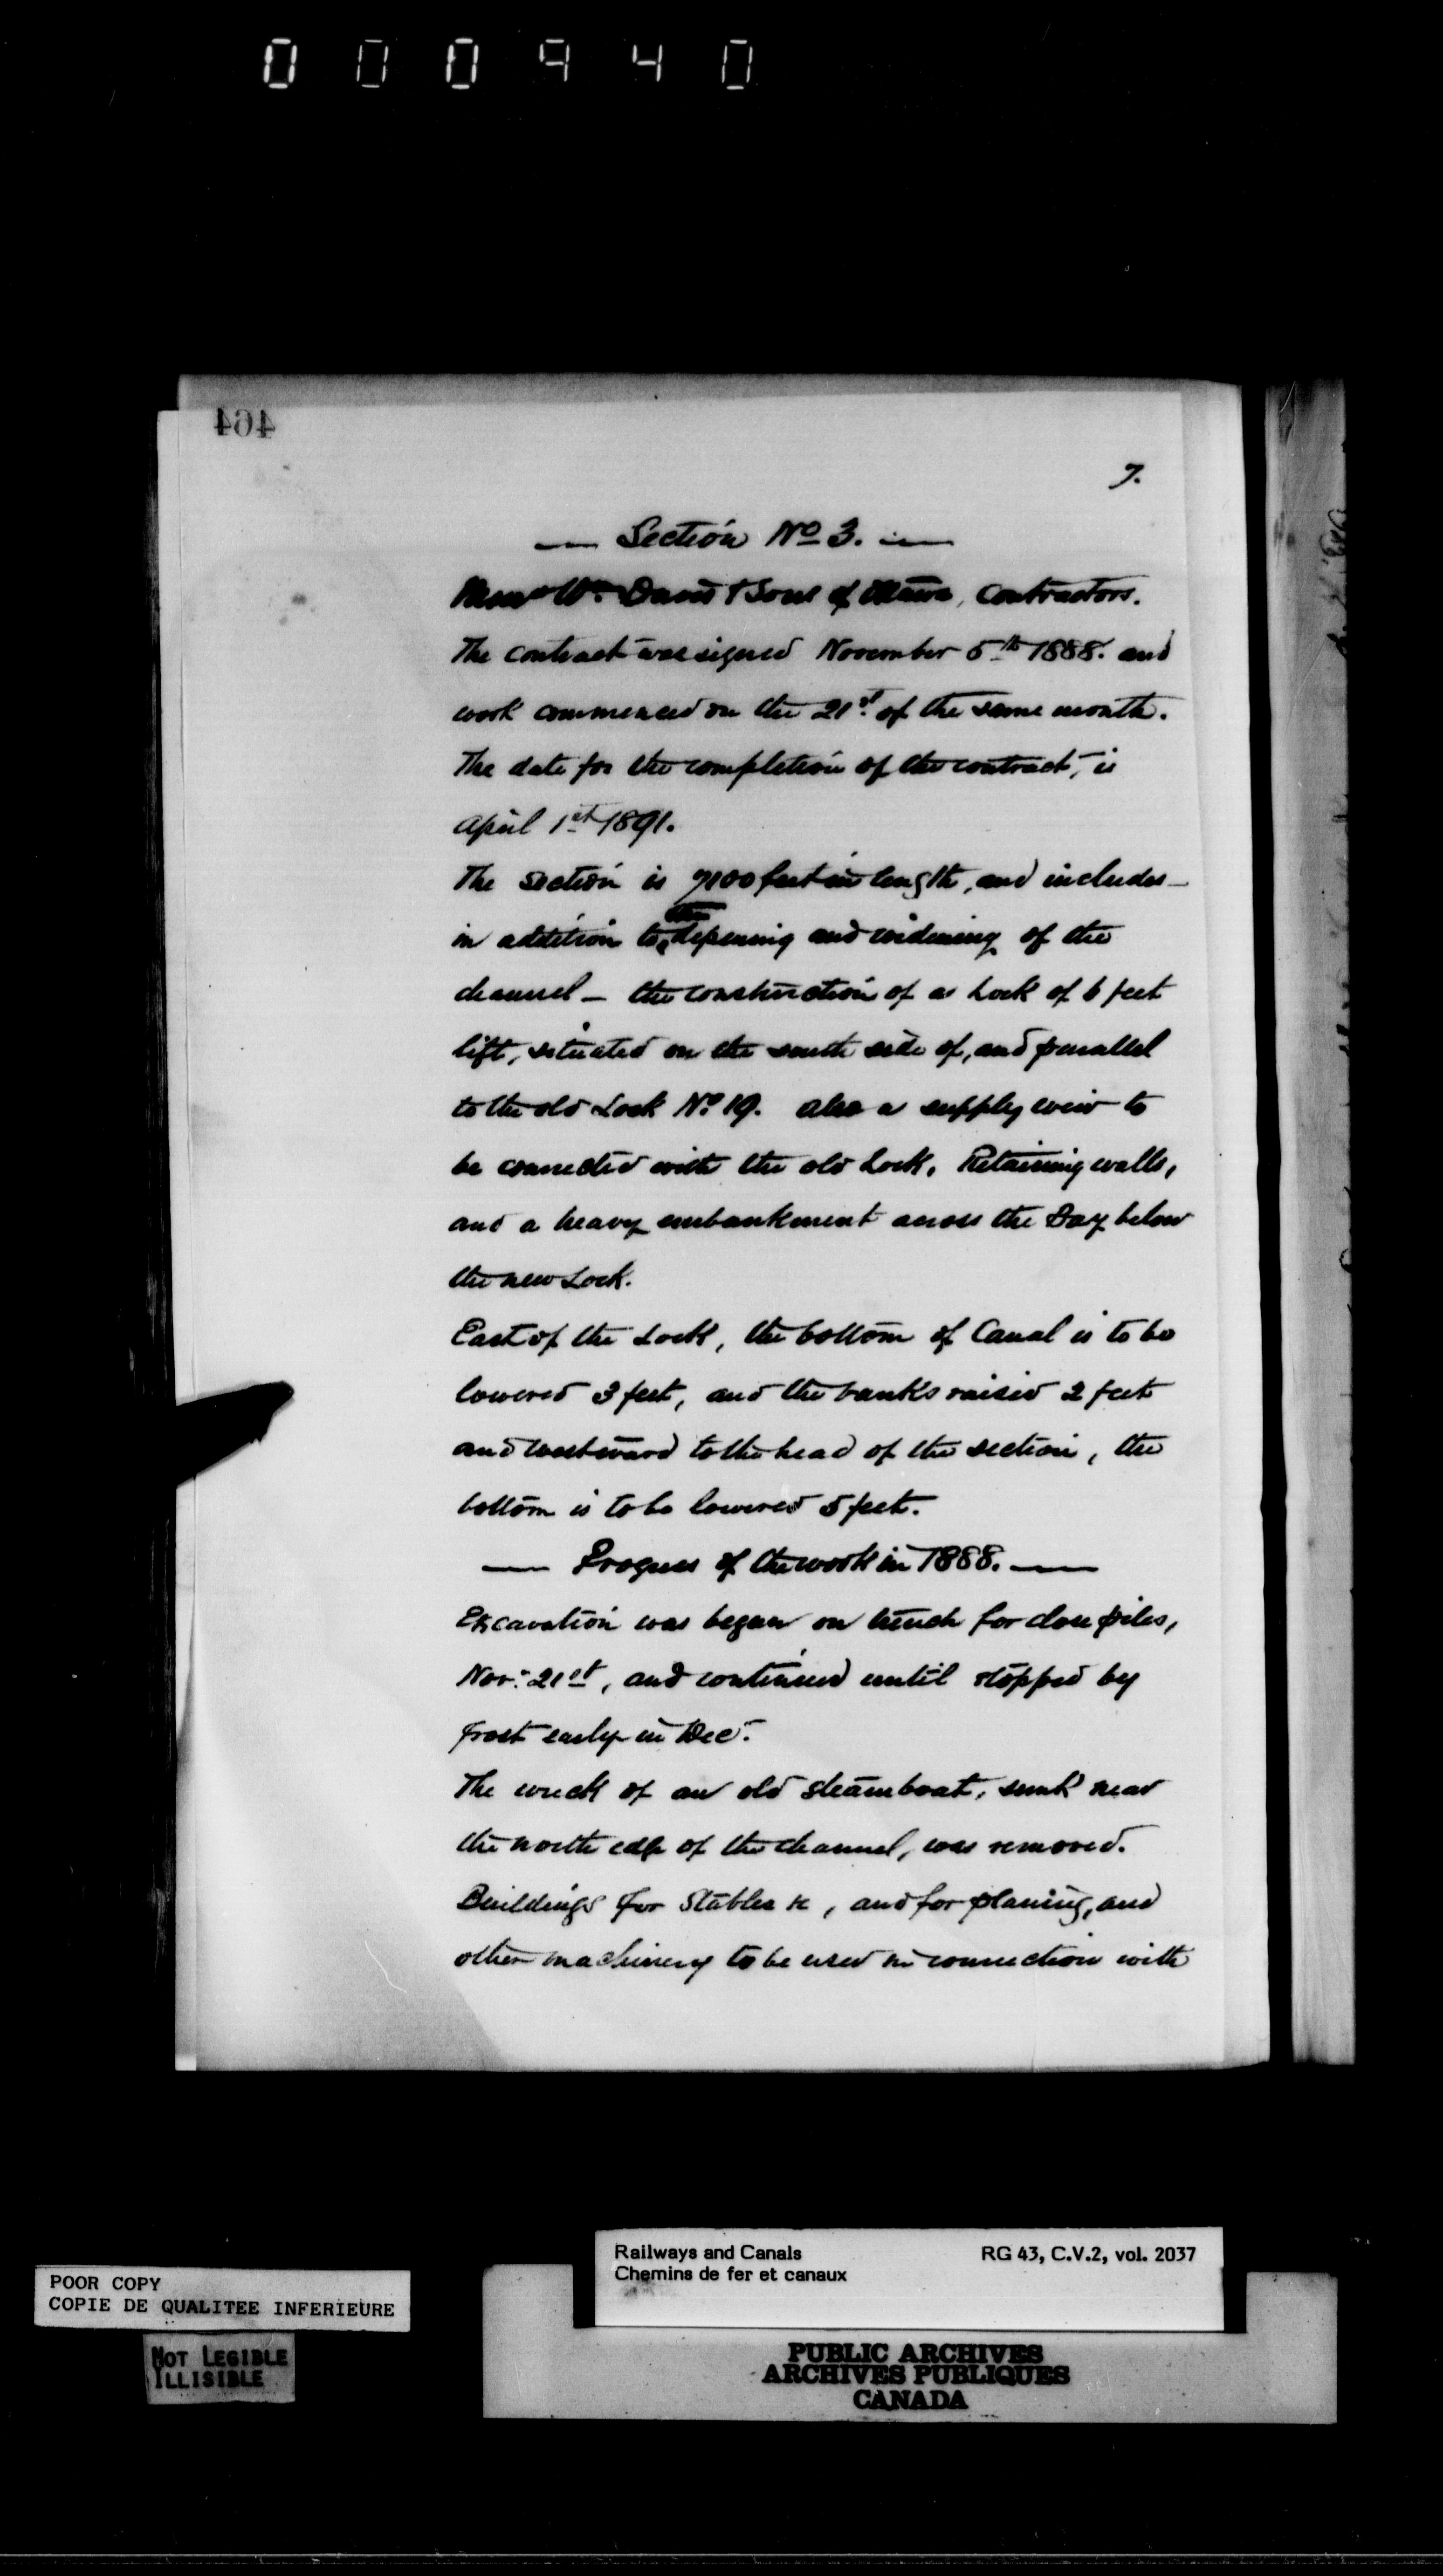 000940
464
7.
— Section No 3. —
Messrs Wm Davis & Sons of Ottawa, Contractors.
The contract was signed November 5th 1888. and
work commenced on the 21st of the same month.
The date for the completion of the contract, is
April 1st 1891.
The section is 7100 feet in length, and includes —
in addition to the depening and widening of the
channel — the construction of a Lock of 6 feet
lift, situated on the south side of, and parallel
to the old Lock No 19. also a supply weir to
be connected with the old Lock, Retaining walls,
and a heavy embankment across the Bay below
the new Lock.
East of the Lock, the bottom of Canal is to be
lowered 3 feet, and the banks raised 2 feet
and westward to the head of the section, the
bottom is to be lowered 5 feet.
— Progress of the work in 1888. —
Excavation was begun on trench for close piles,
Nov. 21st, and continued until stopped by
frost early in Dec.
The wreck of an old steamboat, sunk near
the north edge of the channel, was removed.
Buildings for Stables &c, and for planing, and
other machinery to be used in connection with
Railways and Canals
Chemins de fer et canaux
RG 43, C.V.2, vol. 2037
POOR COPY
COPIE DE QUALITEE INFERIEURE
NOT LEGIBLE
ILLISIBLE
PUBLIC ARCHIVES
ARCHIVES PUBLIQUES
CANADA